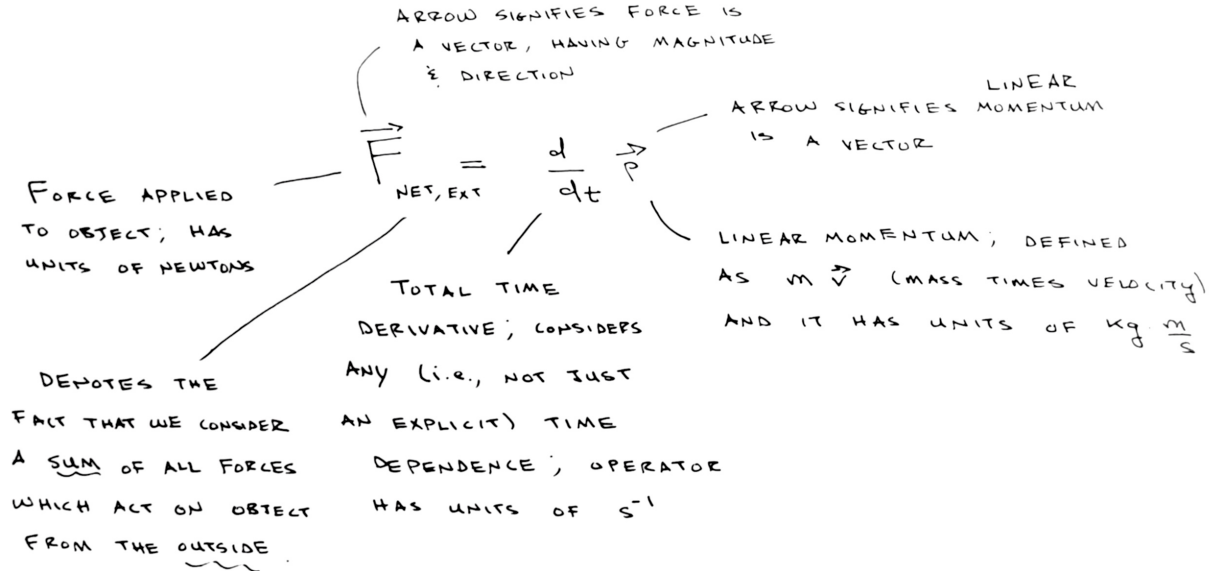 ARROW SIGNIFIES FORCE IS
A VECTOR, HAVING MAGNITUDE
& DIRECTION
LINEAR
ARROW SIGNIFIES MOMENTUM
IS A VECTOR
F⃗ NET, EXT = d/dt p⃗
FORCE APPLIED
TO OBJECT; HAS
UNITS OF NEWTONS
LINEAR MOMENTUM; DEFINED
AS m v⃗ (MASS TIMES VELOCITY)
AND IT HAS UNITS OF Kg m/s
TOTAL TIME
DERIVATIVE; CONSIDERS
ANY (i.e., NOT JUST
AN EXPLICIT) TIME
DEPENDENCE; OPERATOR
HAS UNITS OF s⁻¹
DENOTES THE
FACT THAT WE CONSIDER
A SUM OF ALL FORCES
WHICH ACT ON OBJECT
FROM THE OUTSIDE.